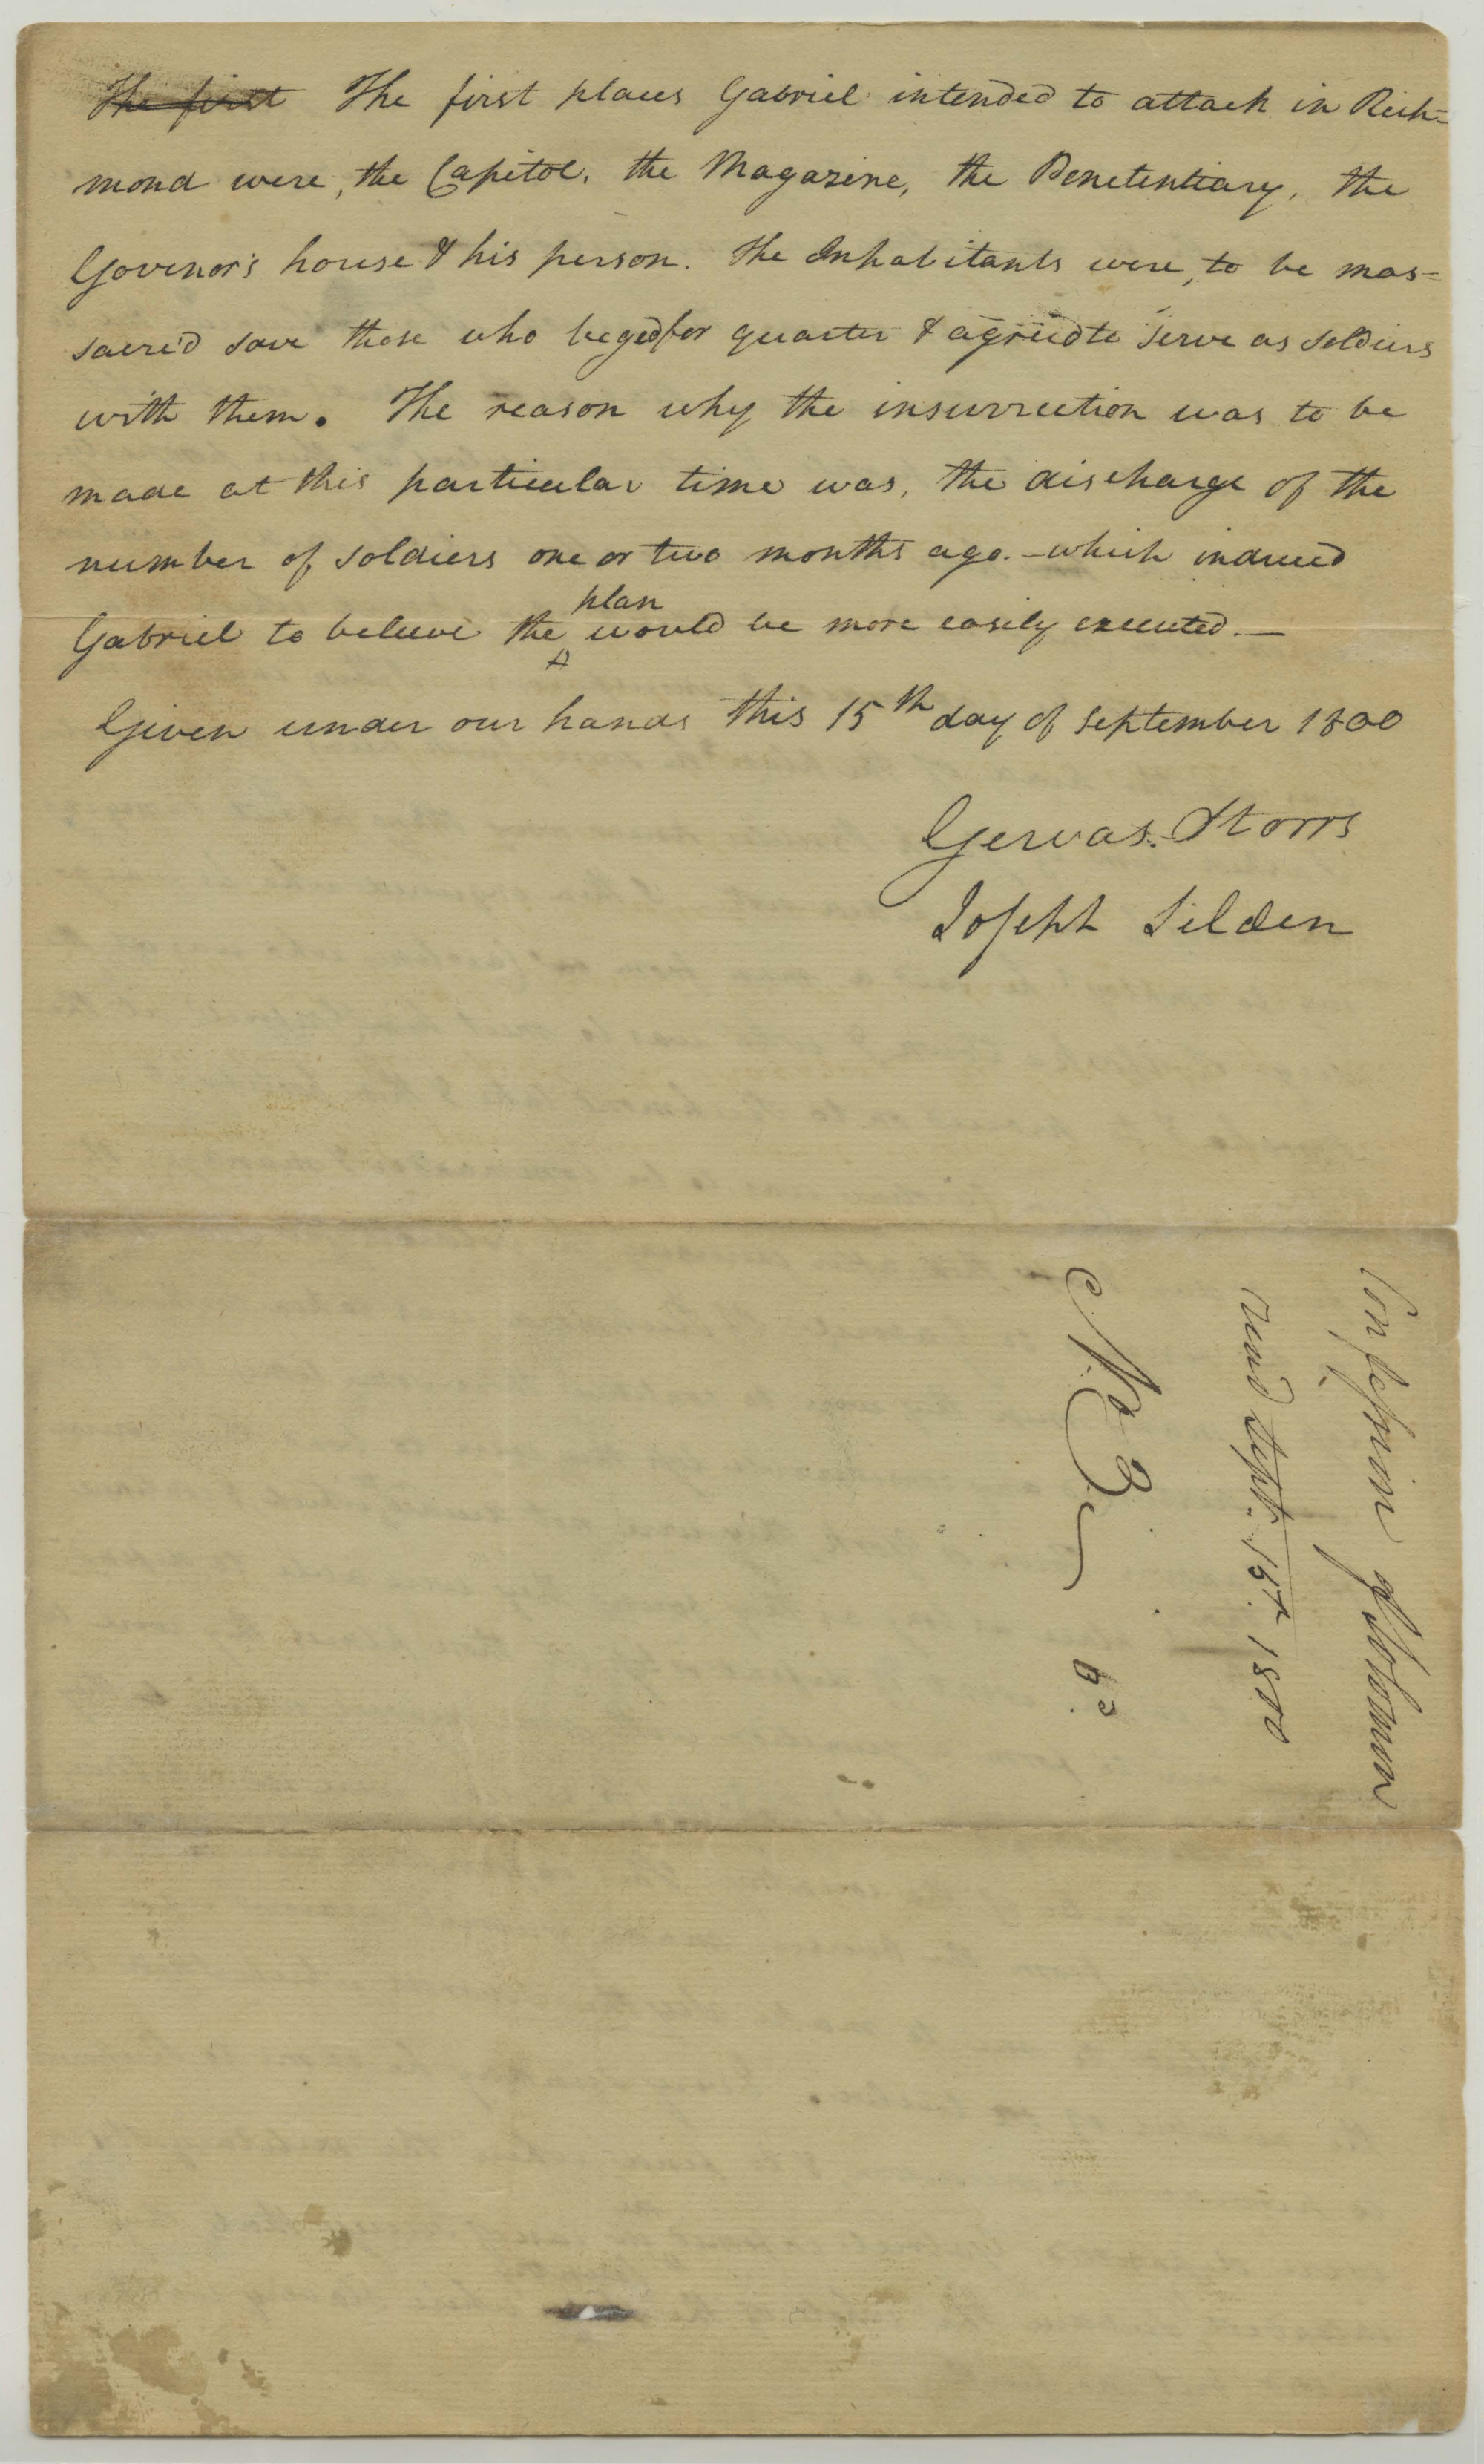 The first The first places Gabriel intended to attack in Rich=
mond were, the Capitol, the Magazine, the Penetentiary, the
Govenor's house & his person. The Inhabitants were, to be mas=
sacre'd save those who beged for quarter & agreed to serve as soldiers
with them. The reason why the insurrection was to be
made at this particular time was, the discharge of the
number of soldiers one or two months ago. – which induced
plan
Gabriel to believe the ^ would be more easily executed. —
Given under our hands this 15th day of September 1800
Gervas. Storrs
Joseph Selden
Confession of Solomon
recd Sept. 15th 1800
No 3